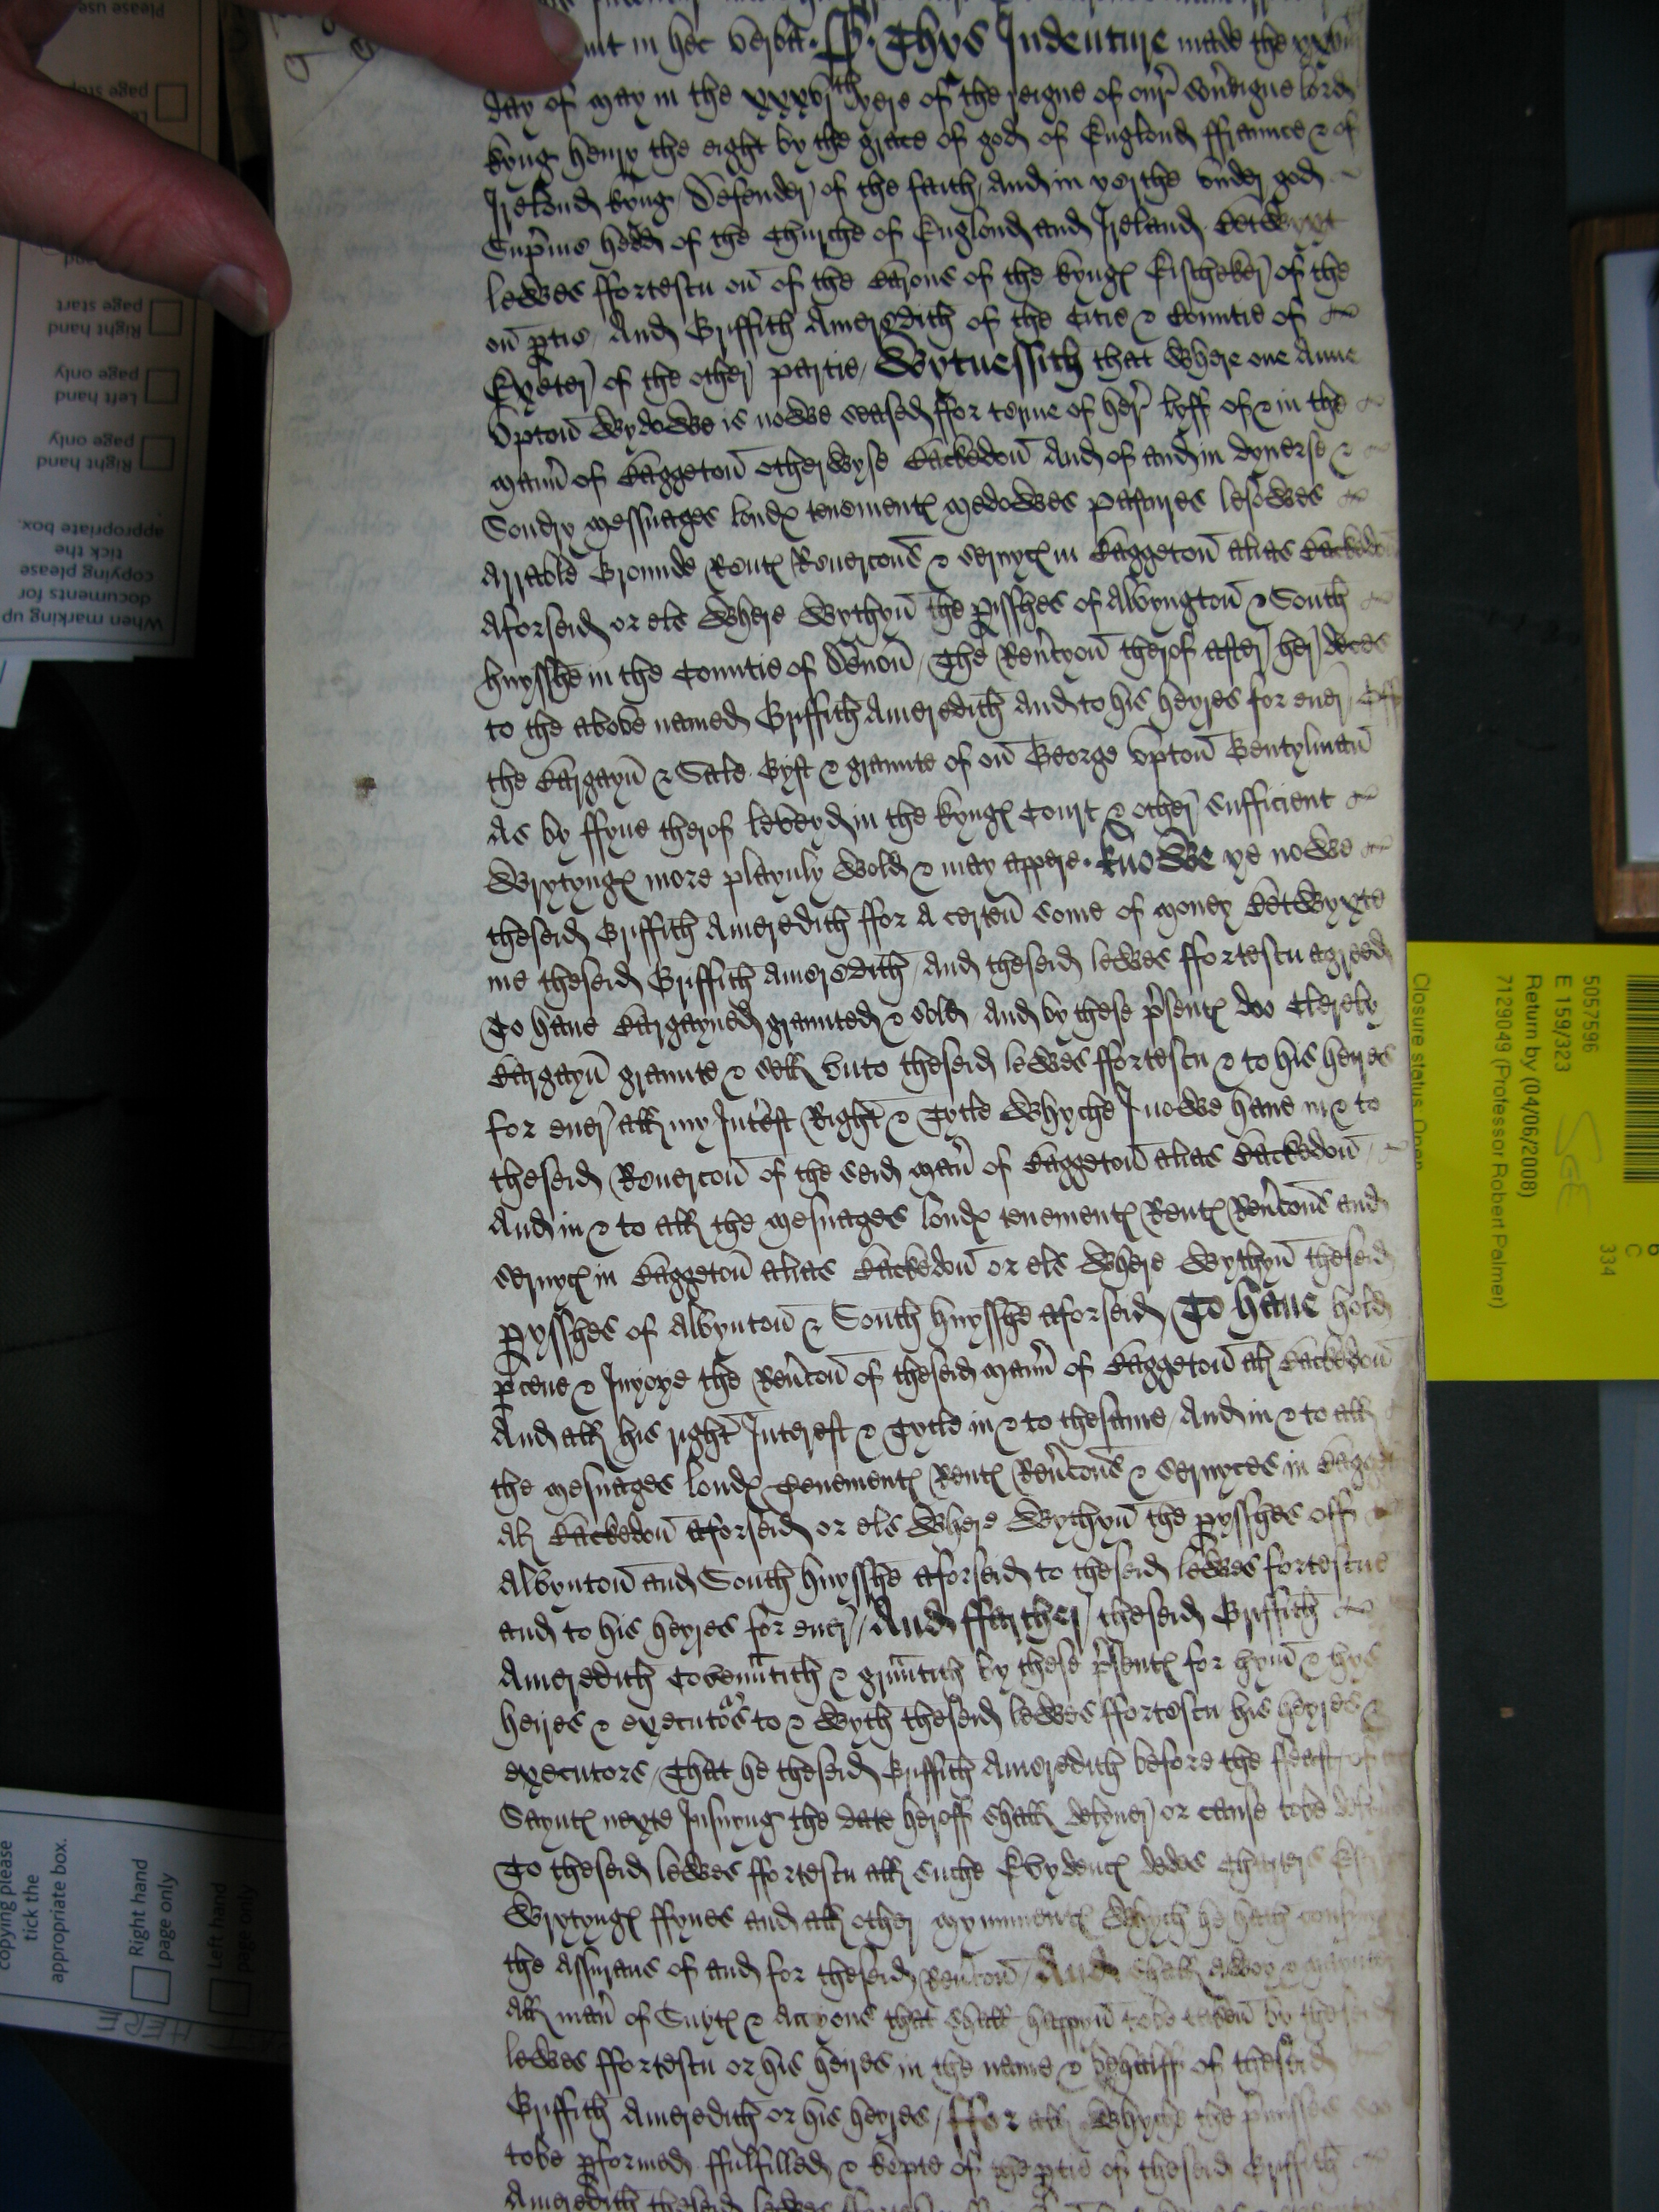 in hec verba. Thys Indenture made the
day of May in the xxxvjth yere of the reigne of our sov'eigne lord
kyng henry the eight by the grace of god of Englond ffraunce & of
Irelond kyng Defender of the faith And in yerthe under god
Sup'me hedd of the Churche of Englond and Ireland Betwyxt
lewes ffortescu on of the Barons of the kynges Excheker of the
on p'tie And Griffith Ameredith of the Citie & Countie of
Exeter of the other partie Wytnessith that Where one Anne
Upton Wydowe is nowe seased ffor terme of her lyff of & in the
man' of Baggeton otherwyse Backedon And of and in dyverse &
Sondry messuages londes tenementes medowes pastures lesowes
Arrable Grounde Rentes Revercons & servyces in Baggeton alias Backedon
Aforseid or els Where Wythyn the p'isshes of Alvyngton & South
huysshe in the Countie of Devon The Rev'cyon therof after her deces
to the above named Griffith Ameredith And to his heyres for ever Off
the Bargayn & Sale Gyft & graunte of on George Upton Gentylman
As by ffyne therof leveyd in the kynges Court & other sufficient
Wrytynges more playnly Wold & may appere. Knowe ye nowe
theseid Griffith Ameredith ffor A certen some of money Betwyxte
me theseid Griffith Ameredith And theseid lewes ffortescu agreed
To have Bargayned graunted & sold And by these p'sentes doo Clerely
Bargayn graunte & sell unto theseid lewes ffortescu & to his heyres
for ever all my Int'est Right & Tytle Whyche I nowe have in & to
theseid Revercon of the seid man' of Baggeton alias Backedon
And in & to all the mesuages londes tenementes Rentes Rev'cons and
servyces in Baggeton alias Backedon or els Where Wythyn theseid
p'ysshes of Alvynton & South huysshe aforseid To have hold
p'ceve & Inyoye the Rev'con of theseid man' of Baggeton als Backedon
And all his right Interest & Tytle in & to thesame And in & to all
the mesuages londes Tenementes Rentes Rev'cons & servyces in
Als Backedon aforseid or els Where Wythyn the p'ysshes off
Alvynton and South huysshe aforseid to theseid lewes fortescue
and to his heyres for ever And ffarther theseid Griffith
Ameredith Covenntith & grauntith by these p'sentes for hym & hys
heires & executors to & Wyth theseid lewes ffortescu his heyres &
executors That he theseid Griffith Ameredith before the ffeast of
Sayntes nexte Insuyng the date heroff shall delyver or cause tobe
To theseid lewes ffortescu all suche Evydences dedes Charters
Wrytynges ffynes and all other mynimentes Whych he hath
the Assurans of and for theseid Rev'con And shall
All man' of Suytes & Accyons that shall happyn tobe taken by theseid
lewes ffortescu or his heires in the name & behalff of theseid
Griffith Ameredith or his heyres ffor all Whyche the p'mysses
tobe p'formed ffulfilled & kepte of the p'tie of theseid Griffith
Ameredith theseid lewes
When marking up documents for copying please tick the appropriate box.
Right hand page only
Left hand page only
Right hand page start
copying please tick the appropriate box.
Right hand page only
Left hand page only
HERE
5057596
E 159/323
Return by (04/06/2008)
7129049 (Professor Robert Palmer)
Closure status Open
SGE
C
334